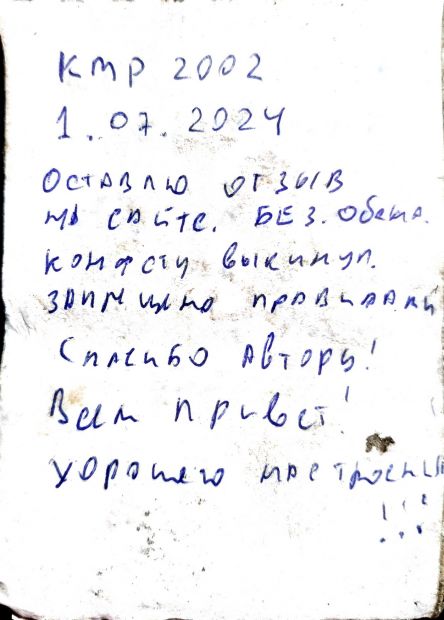 КМР 2002
1.07.2024
ОСТАВЛЮ ОТЗЫВ
НА САЙТЕ. БЕЗ. Обмена.
конфету выкинул.
ЗАПРЕЩЕНО ПРАВИЛАМИ
Спасибо Автору!
Всем Привет!
хорошего настроения
!!!